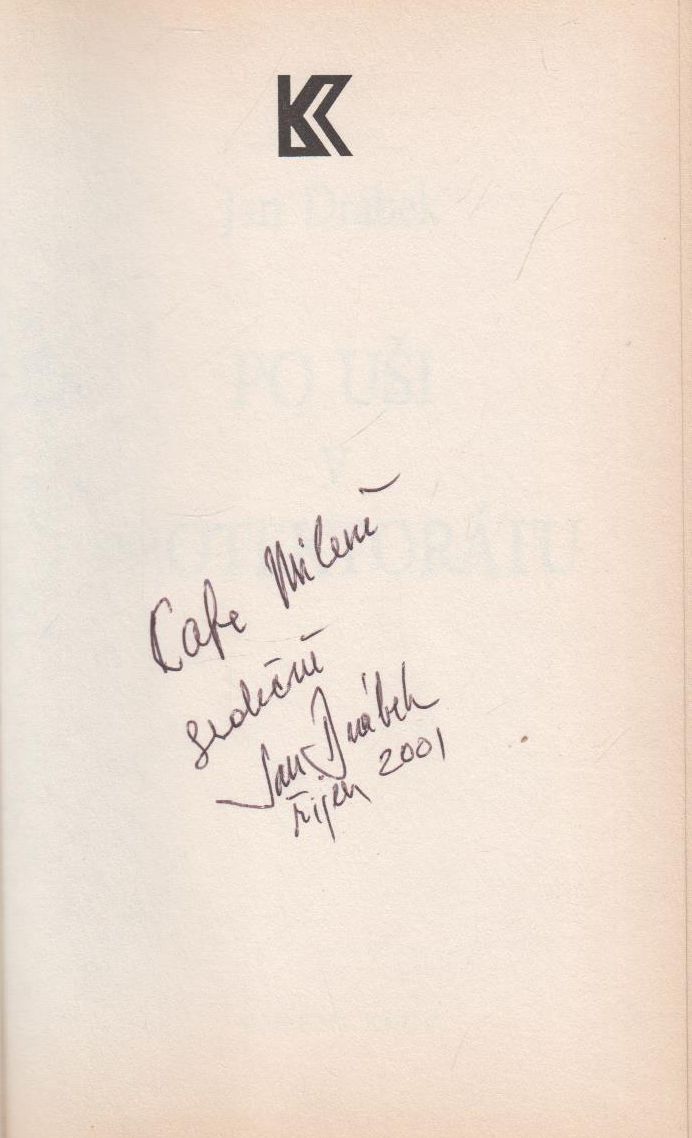 Jan Drábek
PO UŠI
V
PROTEKTORÁTU
Cafe Mileně
srdečně
Jan Drábek
říjen 2001